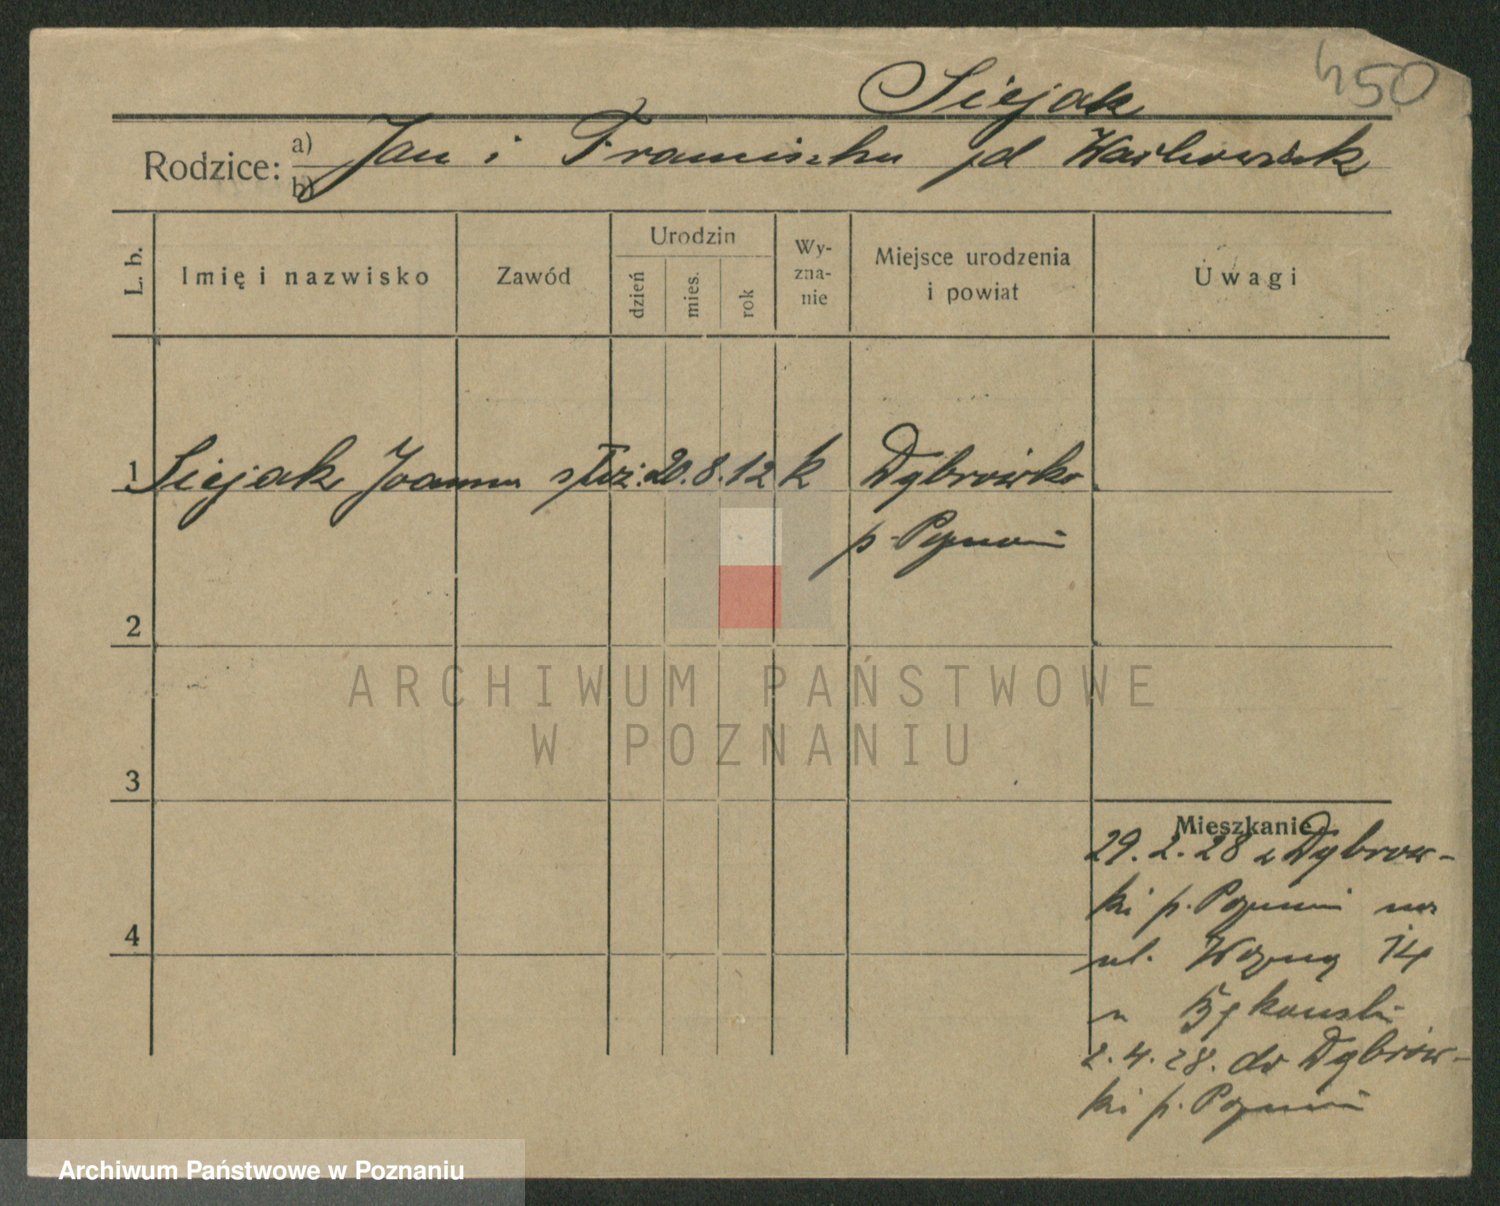 450
Siejak
Rodzice: a) b) Jan i Franciszka
L. b.
Imię i nazwisko
Zawód
Urodzin
dzień
mies.
rok
Wy-
zna-
nie
Miejsce urodzenia
i powiat
Uwagi
1 Siejak Joanna służ. 20. 8. 12 k Dąbrówka
p. Poznań
2
ARCHIWUM PAŃSTWOWE
W POZNANIU
3
Mieszkanie
29. 2. 28 z Dąbrów-
ki p. Poznań na
4
ul. Woźną 14
u Bykowski
2. 4. 28. do Dąbrów-
ki p. Poznań
Archiwum Państwowe w Poznaniu